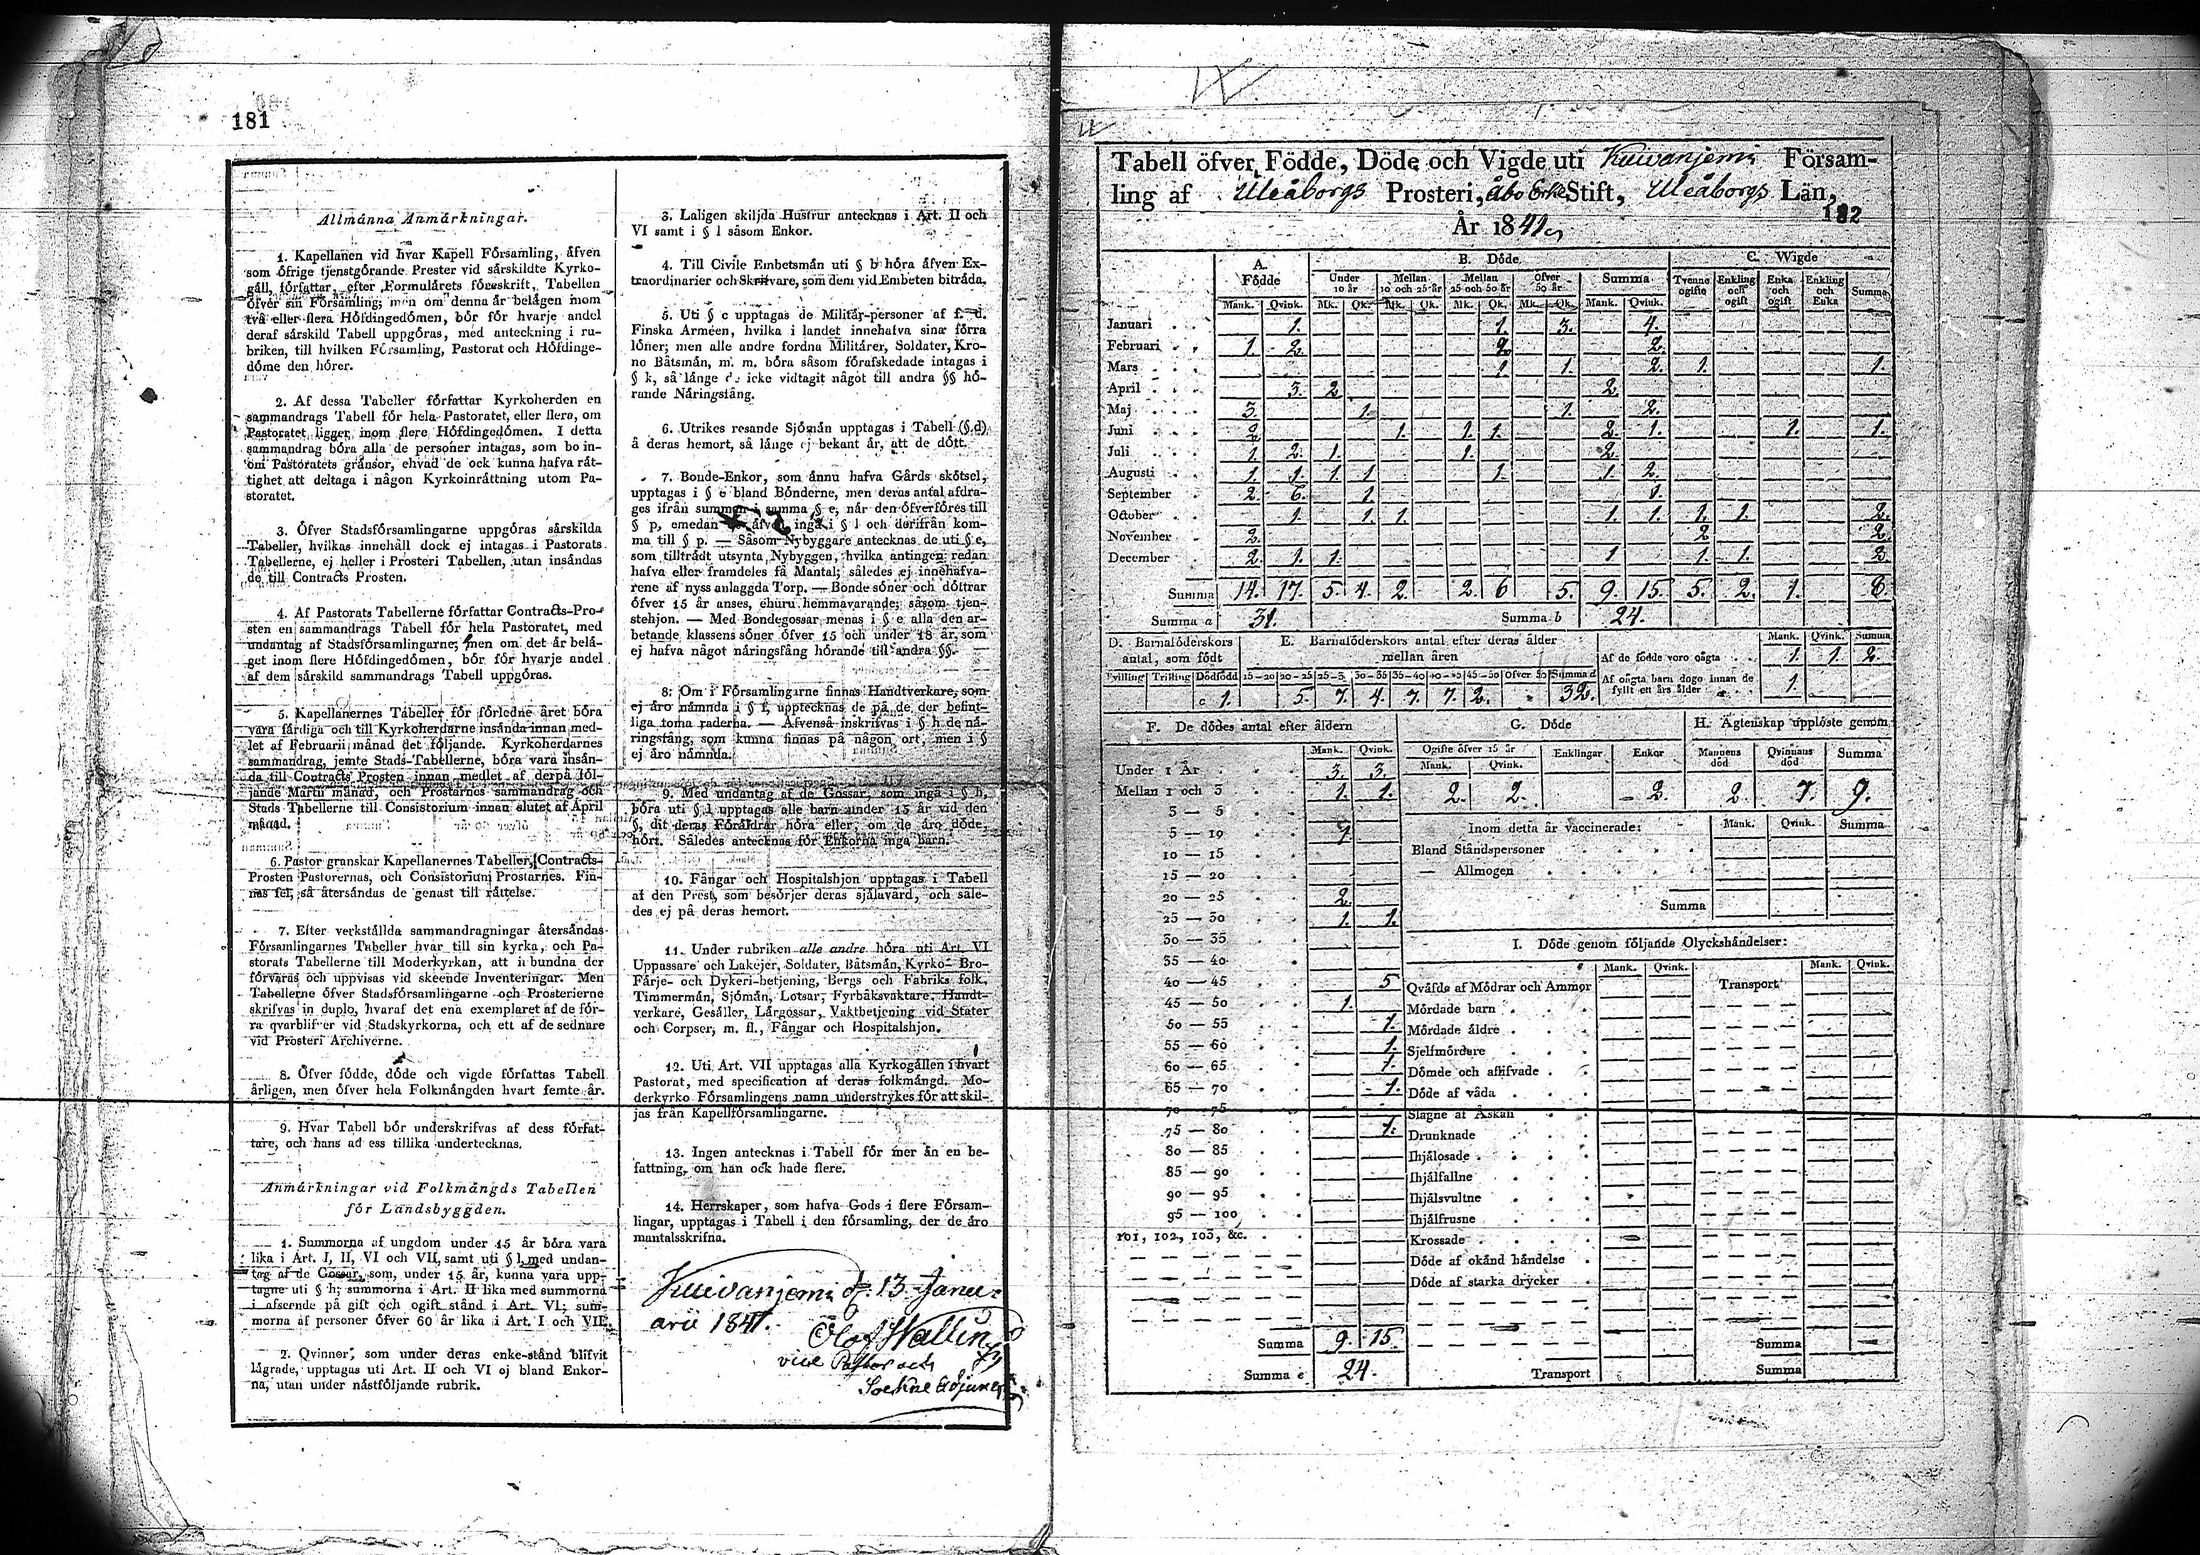 181
Allmänna Anmärkningar.
1. Kapellanen vid hvar Kapell Församling, äfven
som öfrige tjenstgörande Prester vid särskildte Kyrko-
gäll, författar, efter Formulärets föreskrift, Tabellen
öfver sin Församling; men om denna är belägen inom
två eller flera Höfdingedömen, bör för hvarje andel
deraf särskild Tabell uppgöras, med anteckning i ru-
briken, till hvilken Församling, Pastorat och Höfdinge-
döme den hörer.
2. Af dessa Tabeller författar Kyrkoherden en
sammandrags Tabell för hela Pastoratet, eller flera, om
Pastoratet ligger inom flere Höfdingedömen. I detta
sammandrag böra alla de personer intagas, som bo in-
om Pastoratets gränsor, ehvad de ock kunna hafva rät-
tighet att deltaga i någon Kyrkoinrättning utom Pa-
storatet.
3. Öfver Stadsförsamlingarne uppgöras särskilda
Tabeller, hvilkas innehåll dock ej intagas i Pastorats
Tabellerne, ej heller i Prosteri Tabellen, utan insändas
de till Contracts Prosten.
4. Af Pastorats Tabellerne författar Contracts-Pro-
sten en sammandrags Tabell för hela Pastoratet, med
undantag af Stadsförsamlingarne; men om det är belä-
get inom flere Höfdingedömen, bör för hvarje andel
af dem särskild sammandrags Tabell uppgöras.
5. Kapellanernes Tabeller för förledne året böra
vara färdiga och till Kyrkoherdarne insända innan med-
let af Februarii månad det följande. Kyrkoherdarnes
sammandrag, jemte Stads-Tabellerne, böra vara insän-
da till Contracts Prosten innan medlet af derpå föl-
jande Martii månad, och Prostarnes sammandrag och
Stads Tabellerne till Consistorium innan slutet af April
månad.
6. Pastor granskar Kapellanernes Tabeller, Contracts-
Prosten Pastorernas, och Consistorium Prostarnes. Fin-
nas fel, så återsändas de genast till rättelse.
7. Efter verkställda sammandragningar återsändas
Församlingarnes Tabeller hvar till sin kyrka, och Pa-
storats Tabellerne till Moderkyrkan, att inbundna der
förvaras och uppvisas vid skeende Inventeringar. Men
Tabellerne öfver Stadsförsamlingarne och Prosterierne
skrifvas in duplo, hvaraf det ena exemplaret af de för-
ra qvarblifver vid Stadskyrkorna, och ett af de sednare
vid Prosteri Archiverne.
8. Öfver födde, döde och vigde författas Tabell
årligen, men öfver hela Folkmängden hvart femte år.
9. Hvar Tabell bör underskrifvas af dess förfat-
tare, och hans adress tillika undertecknas.
Anmärkningar vid Folkmängds Tabellen
för Landsbyggden.
1. Summorna af ungdom under 15 år böra vara
lika i Art. I, II, VI och VII, samt uti § l, med undan-
tag af de Gossar, som, under 15 år, kunna vara upp-
tagne uti § h; summorna i Art. II lika med summorna
i afseende på gift och ogift stånd i Art. VI; sum-
morna af personer öfver 60 år lika i Art. I och VII.
2. Qvinnor, som under deras enke-stånd blifvit
lägrade, upptagas uti Art. II och VI ej bland Enkor-
na, utan under nästföljande rubrik.
3. Laligen skiljda Hustrur antecknas i Art. II och
VI samt i § l såsom Enkor.
4. Till Civile Embetsmän uti § b höra äfven Ex-
traordinarier och Skrifvare, som dem vid Embeten biträda.
5. Uti § c upptagas de Militär-personer af f. d.
Finska Arméen, hvilka i landet innehafva sina förra
löner; men alle andre fordna Militärer, Soldater, Kro-
no Båtsmän, m. m. böra såsom förafskedade intagas i
§ k, så länge de icke vidtagit något till andra §§ hö-
rande Näringsfång.
6. Utrikes resande Sjömän upptagas i Tabell (§ d)
å deras hemort, så länge ej bekant är, att de dött.
7. Bonde-Enkor, som ännu hafva Gårds skötsel,
upptagas i § e bland Bönderne, men deras antal afdra-
ges ifrån summan i samma § e, när den öfverföres till
§ p, emedan de äfven ingå i § l och derifrån kom-
ma till § p. — Såsom Nybyggare antecknas de uti § e,
som tillträdt utsynta Nybyggen, hvilka antingen redan
hafva eller framdeles få Mantal; således ej innehafva-
rene af nyss anlaggda Torp. — Bonde söner och döttrar
öfver 15 år anses, ehuru hemmavarande, såsom tjen-
stehjon. — Med Bondegossar menas i § e alla den ar-
betande klassens söner öfver 15 och under 18 år, som
ej hafva något näringsfång hörande till andra §§.
8. Om i Församlingarne finnas Handtverkare, som
ej äro nämnda i § f, upptecknas de på de der befint-
liga toma raderna. — Äfvenså inskrifvas i § h de nä-
ringsfång, som kunna finnas på någon ort, men i §
ej äro nämnda.
9. Med undantag af de Gossar, som ingå i § h,
böra uti § l upptagas alle barn under 15 år vid den
§, dit deras Föräldrar höra eller, om de äro döde,
hört. Således antecknas för Enkorna inga barn.
10. Fångar och Hospitalshjon upptagas i Tabell
af den Prest, som besörjer deras själavård, och såle-
des ej på deras hemort.
11. Under rubriken alle andre höra uti Art. VI
Uppassare och Lakejer, Soldater, Båtsmän, Kyrko- Bro-
Färje- och Dykeri-betjening, Bergs och Fabriks folk,
Timmermän, Sjömän, Lotsar, Fyrbåksvaktare, Handt-
verkare, Gesäller, Lärgossar, Vaktbetjening vid Stäter
och Corpser, m. fl., Fångar och Hospitalshjon.
12. Uti Art. VII upptagas alla Kyrkogällen i hvart
Pastorat, med specification af deras folkmängd. Mo-
derkyrko Församlingens namn understrykes för att skil-
jas från Kapellförsamlingarne.
13. Ingen antecknas i Tabell för mer än en be-
fattning, om han ock hade flere.
14. Herrskaper, som hafva Gods i flere Försam-
lingar, upptagas i Tabell i den församling, der de äro
mantalsskrifna.
Kuivaniemi d. 13 Janu-
arii 1841.
Olof Wallin
vice Pastor och
Sockne Adjunct
Tabell öfver Födde, Döde och Vigde uti Kuivaniemi Försam-
ling af Uleåborgs Prosteri, Åbo Erke Stift, Uleåborgs Län,
182
År 184
A. Födde B. Döde C. Wigde
Under 10 år Mellan 10 och 25 år Mellan 25 och 50 år Öfver 50 år Summa Tvenne ogifte Enkling och ogift Enka och ogift Enkling och Enka Summa
Mank. Qvink. Mk. Qk. Mk. Qk. Mk. Qk. Mk. Qk. Mank. Qvink.
Januari 1. 1. 3. 4.
Februari 1. 2. 2. 2.
Mars 1. 1. 2. 1. 1.
April 3. 2. 2.
Maj 3. 1. 1. 2.
Juni 2. 1. 1. 1. 2. 1. 1. 1.
Juli 1. 2. 1. 1. 2.
Augusti 1. 1. 1. 1. 1. 1. 2.
September 2. 6. 1. 1.
October 1. 1. 1. 1. 1. 1. 1. 2.
November 2. 2 2.
December 2. 1. 1. 1 1. 1. 2.
Summa 14. 17. 5. 4. 2. 2. 6 5. 9. 15. 5. 2. 1. 8
Summa a 31. Summa b 24.
D. Barnaföderskors antal, som födt
E. Barnaföderskors antal efter deras ålder mellan åren
Mank. Qvink. Summa
Af de födde voro oägta 1. 1. 2.
Af oägta barn dogo innan de fyllt ett års ålder 1.
Tvilling Trilling Dödfödd 15-20 20-25 25-3. 30-35 35-40 40-45 45-50 Öfver 50 Summa d
c 1. 5. 7. 4. 7. 7. 2. 32.
F. De dödes antal efter åldern
Mank. Qvink.
Under 1 År 3. 3.
Mellan 1 och 3 1. 1.
3 — 5
5 — 10 1.
10 — 15
15 — 20
20 — 25 2.
25 — 30 1. 1.
30 — 35
35 — 40
40 — 45 5
45 — 50 1.
50 — 55 1.
55 — 60 1.
60 — 65 1.
65 — 70 1.
70 — 75
75 — 80 1.
80 — 85
85 — 90
90 — 95
95 — 100
101, 102, 103, &c.
Summa 9. 15.
Summa e 24.
G. Döde
Ogifte öfver 15 år Enklingar Enkor
Mank. Qvink.
2. 2. 2.
H. Ägtenskap upplöste genom
Mannens död Qvinnans död Summa
2. 7. 9.
Inom detta år vaccinerade: Mank. Qvink. Summa
Bland Ståndspersoner
— Allmogen
Summa
I. Döde genom följande Olyckshändelser:
Mank. Qvink. Mank. Qvink.
Qväfde af Mödrar och Ammor Transport
Mördade barn
Mördade äldre
Sjelfmördare
Dömde och aflifvade
Döde af våda
Slagne af Åskan
Drunknade
Ihjälosade
Ihjälfallne
Ihjälsvultne
Ihjälfrusne
Krossade
Döde af okänd händelse
Döde af starka drycker
Summa
Transport Summa